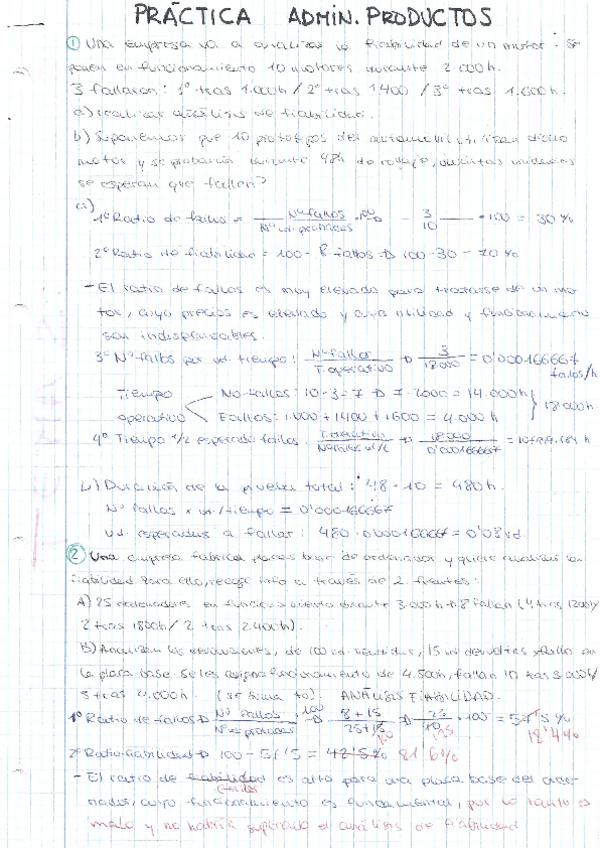 PRÁCTICA ADMIN. PRODUCTOS
① Una empresa va a analizar la fiabilidad de un motor. Se
ponen en funcionamiento 10 motores durante 2000h.
3 fallaron: 1º tras 1.000h / 2º tras 1400 / 3º tras 1.600h.
a) realizar análisis de fiabilidad.
b) Suponemos que 10 prototipos del automovil utilizan dicho
motor y se probarán durante 48h de rodaje, cuántas unidades
se esperan que fallen?
a)
1º Ratio de fallos = Nº fallos / Nº ud. probadas · 100 - 3/10 · 100 = 30%
2º Ratio de fiabilidad = 100 - R fallos → 100 - 30 = 70%
- El ratio de fallos es muy elevado para tratarse de un mo-
tor, cuyo precio es elevado y cuya utilidad y funcionamiento
son indispensables.
3º Nº fallos por ud. tiempo: Nº fallos / T. operativo → 3 / 18000 = 0'000166667
fallos/h
Tiempo operativo
No fallos: 10-3=7 → 7·2000 = 14.000h
Fallos: 1.000 + 1400 + 1600 = 4.000h
18.000h
4º Tiempo e/ esperado fallos:
b) Duración de la prueba total: 48·10 = 480h.
Nº fallos x ud./tiempo = 0'000166667
ud. esperadas a fallar: 480 · 0'000166667 = 0'08 ud
② Una empresa fabrica placas base de ordenador y quiere analizar la
fiabilidad. Para ello, recoge info a través de 2 fuentes:
A) 25 ordenadores en funcionamiento durante 3.000h → 8 fallan (4 tras 1200h/
2 tras 1800h / 2 tras 2400h).
B) Analizan las devoluciones, de 100 ud. vendidas, 15 ud devueltas x fallo en
la placa base. Se les asigna funcionamiento de 4.500h, fallan 10 tras 3.000h/
5 tras 4.000h. (se suma to). ANÁLISIS FIABILIDAD.
1º Ratio de fallos → Nº fallos / Nº ud probadas · 100 → 8+15 / 25+15 → 23/40 · 100 = 57'5%
100 125 18'4%
2º Ratio fiabilidad → 100 - 57'5 = 42'5% 81'6%
- El ratio de fiabilidad es alto para una placa base del orde-
fallos
nador, cuyo funcionamiento es fundamental, por lo tanto es
malo y no habría superado el análisis de fiabilidad